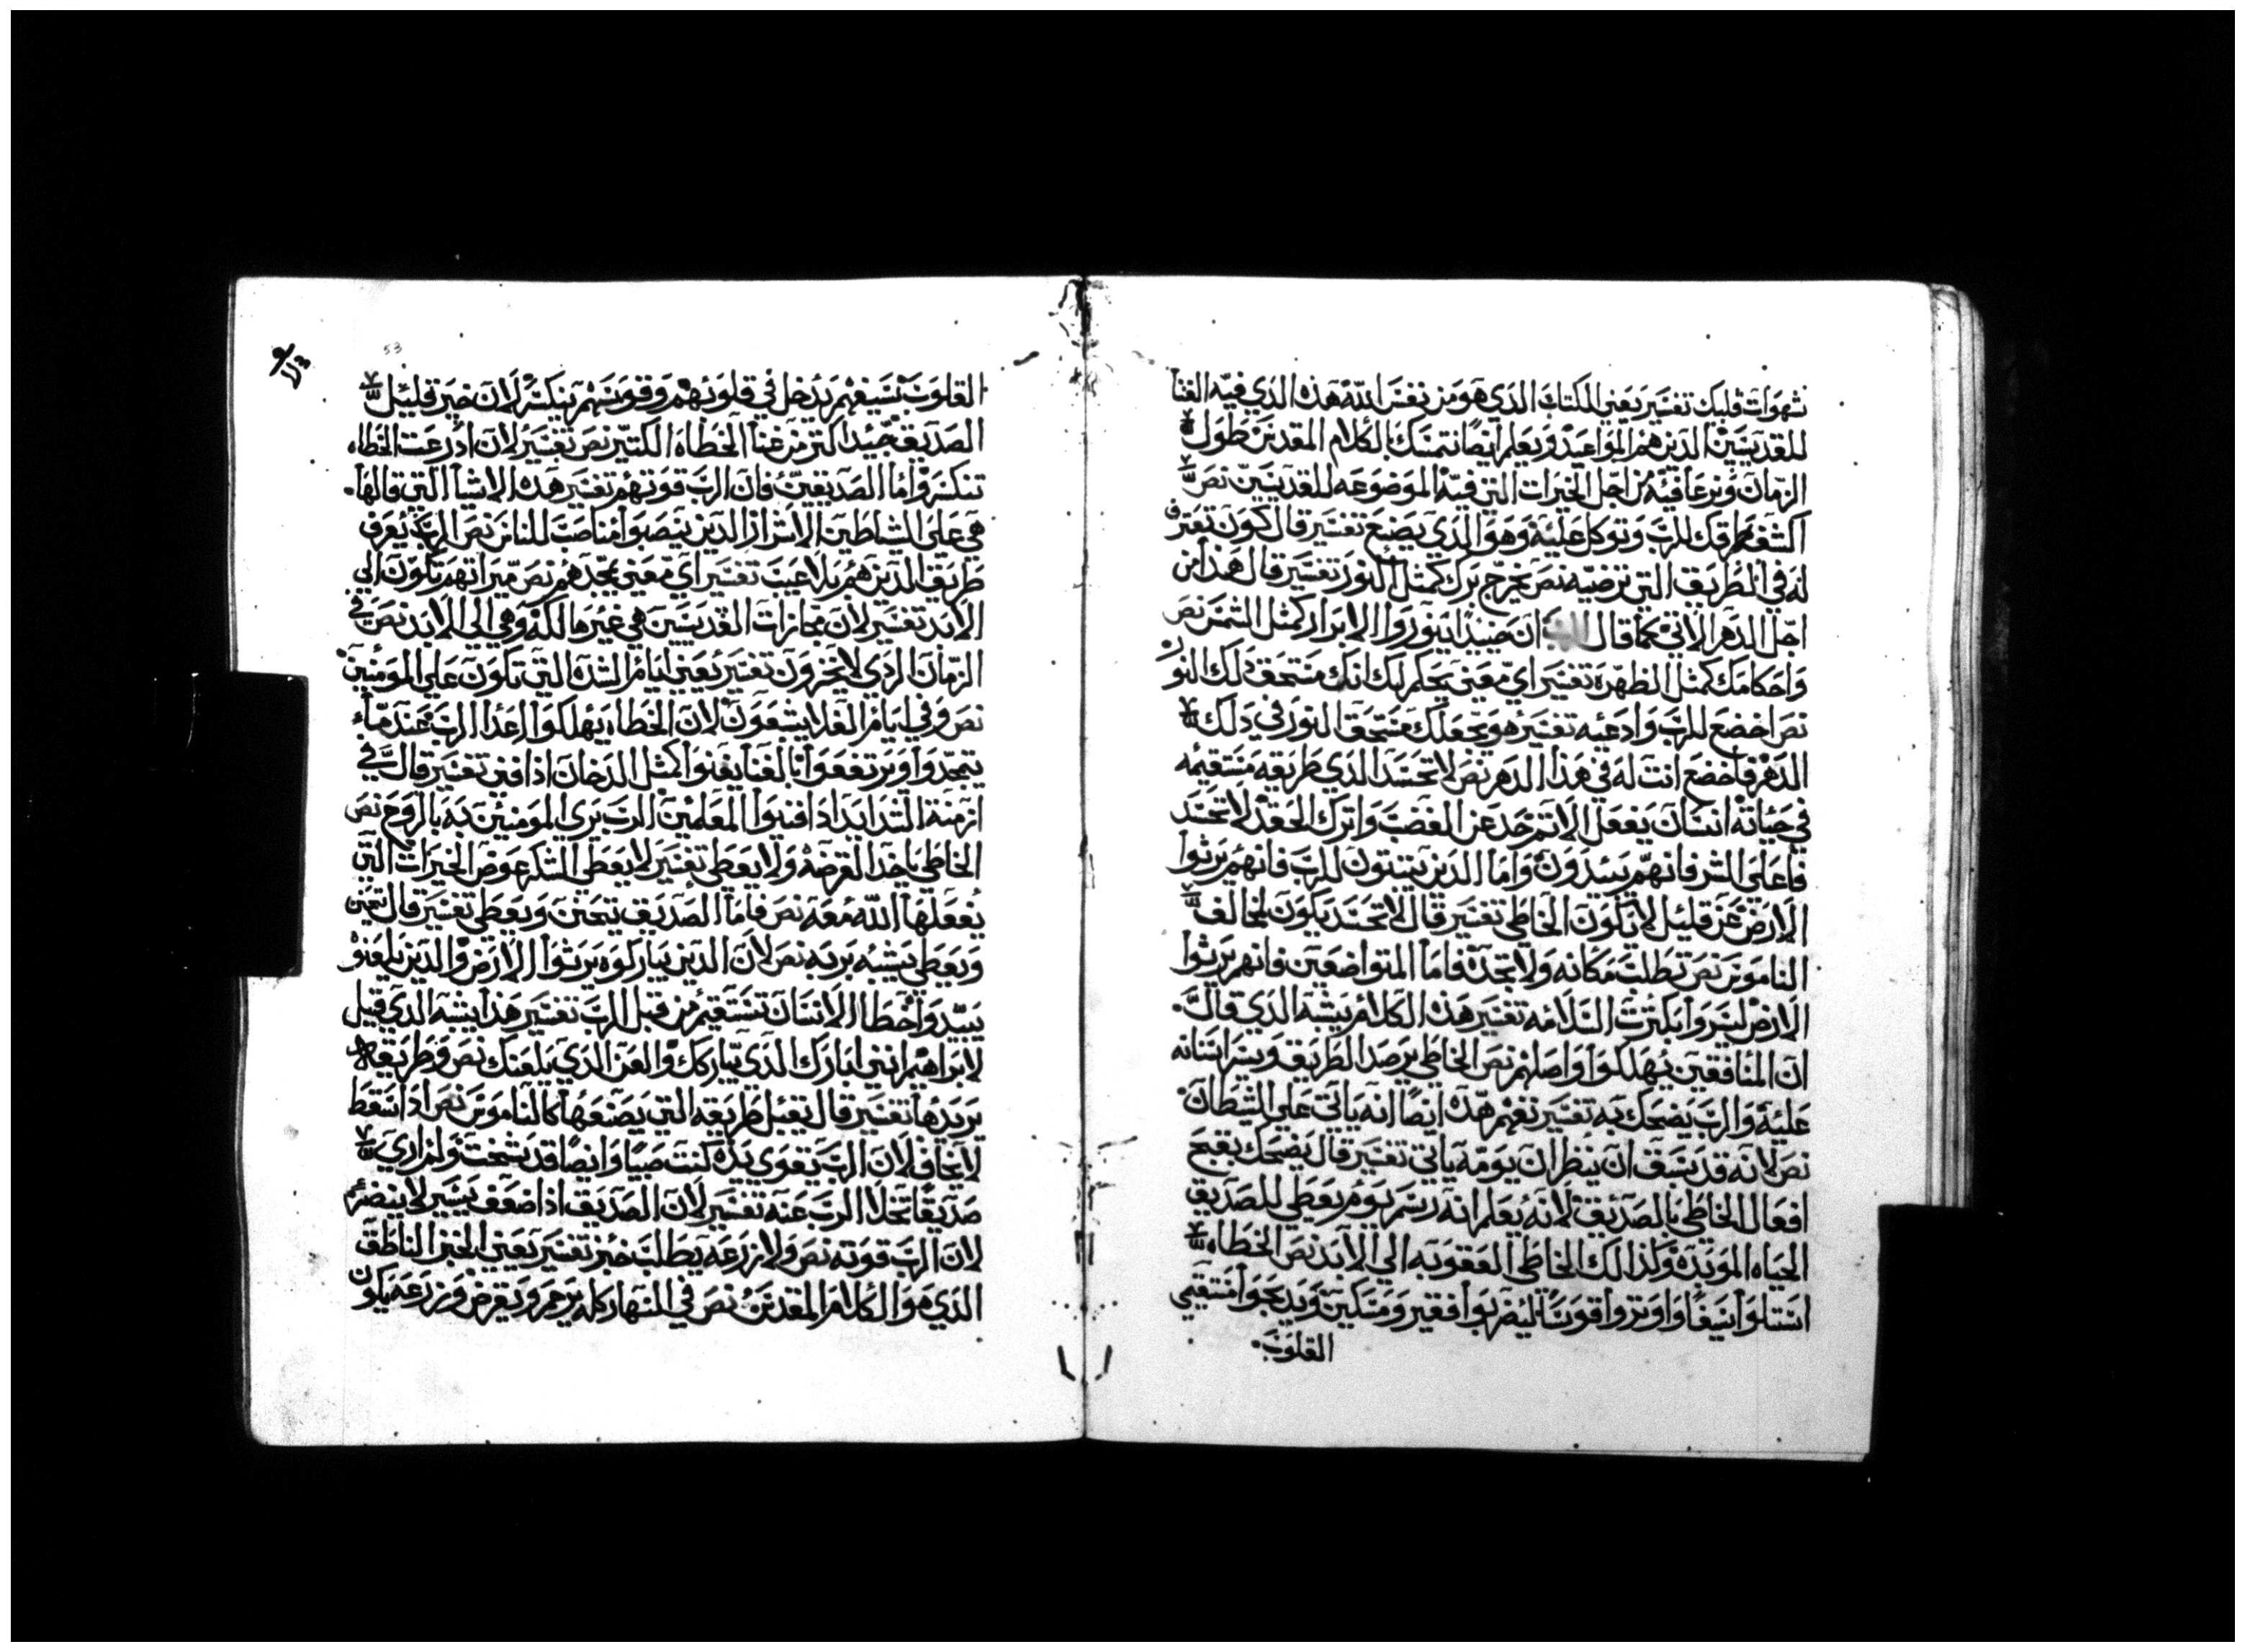 شهوات قلبك تفسير يعني الكتاب الذي هو من نفس الله هذه الذي فيه الغنا
للقديسين الذين هم المواعيد ويعلم ايضا نتمسك بالكلام المقدس طول
الزمان ونرعا فيه من اجل الخيرات التي فيه الموضوعه للقديسين نص
اكشف طرقك للرب وتوكل عليه وهو الذي يصنع تفسير قال كون تعترف
له في الطريق التي ترضيه نص يخرج برك كمثل النور تفسير قال هذا من
اجل الدهر الاتي كما قال ان ضيدا ينوروا الابرار كمثل الشمس نص
واحكامك كمثل الظهره تفسير اي معني يحكم لك انك مستحق ذلك النور
نص اخضع للرب وادعيه تفسير هو يجعلك مستحق النور في ذلك
الدهر فاخضع انت له في هذا الدهر نص لا تحسد الذي طريقه مستقيمه
في حياته انسان يفعل الاثم خد عن الغضب واترك الحقد لا تحسد
فاعلي الشر فانهم يبيدون واما الذين يتبتون للرب فانهم يرثوا
الارض عن قليل لا يكون الخاطي تفسير قال لا تحسد يكون لمخالف
الناموس نص تطلب مكانه ولا تجده فاما المتواضعين فانهم يرثوا
الارض ليسروا بكترت السلامه تفسير هذه الكلام يشبه الذي قال
ان المنافقين يهلكوا واصلهم نص الخاطي يرصد الصديق ويصر اسنانه
عليه والرب يضحك به تفسير نعم هذه ايضا انه ياتي علي الشيطان
نص لانه قد سبق ان ينظر ان يومه ياتي تفسير قال يضحك يقبح
افعال الخاطي بالصديق لانه يعلم انه رسم يوم يعطي للصديق
الحياه الموبده وكذالك الخاطي العقوبه الي الابد نص الخطاه
استلوا سيفا واوتروا قوسا ليضربوا فقير ومسكين ويدبحوا مستقيمي
القلوب
53
القلوب سيفهم يدخل في قلوبهم وقوسهم ينكسر لان خير قليل
الصديق جيد اكتر من غنا الخطاه الكتير نص تفسير لان ادرعت الخطاه
تنكسر واما الصديقين فان الرب قوتهم تفسير هذه الاشيا التي قالها
هي علي الشياطين الاشرار الذين ينصبوا مناصب للناس نص الرب يعرف
طريق الذين هم بلا عيب تفسير اي معني يمجدهم نص ميراتهم يكون الي
الابد تفسير لان مجازات القديسين هي غير هالكه وهي الي الابد نص في
الزمان الردي لا يخزون تفسير يعني ايام الشده التي تكون علي المومنين
نص وفي ايام الغلا يشبعون لان الخطاه يهلكوا اعدا الرب عند ما
يتمجدوا ويرتفعوا بالغنا يفنوا كمثل الدخان اذا فني تفسير قال في
ازمنة الشدايد اذا فنيوا المعلمين الرب يري المومنين به بالروح نص
الخاطي ياخد القرضه ولا يعطي تفسير لا يعطي الشكر عوض الخيرات التي
يفعلها الله معه نص فاما الصديق يتحنن ويعطي تفسير قال يتحنن
ويعطي يتشبه بربه نص لان الذين يباركوه يرثوا الارض والذين يلعنوه
يبيدوا خطا الانسان تستقيم من قبل الرب تفسير هذا يشبه الذي قيل
لابراهيم انني ابارك الذي يباركك والعن الذي يلعنك نص وطريقه
يريدها تفسير قال يقبل طريقه التي يصنعها كالناموس نص اذا سقط
لا يخاف لان الرب يقوي يده كنت صبيا وايضا قد شخت ولم اري
صديقا تخلا الرب عنه تفسير لان الصديق اذا ضعف يسير لا ينضر
لان الرب قوته نص ولا زرعه يطلب خبز تفسير يعني الخبز الناطق
الذي هو الكلام المقدس نص في النهار كله يرحم ويقرض وزرعه يكون